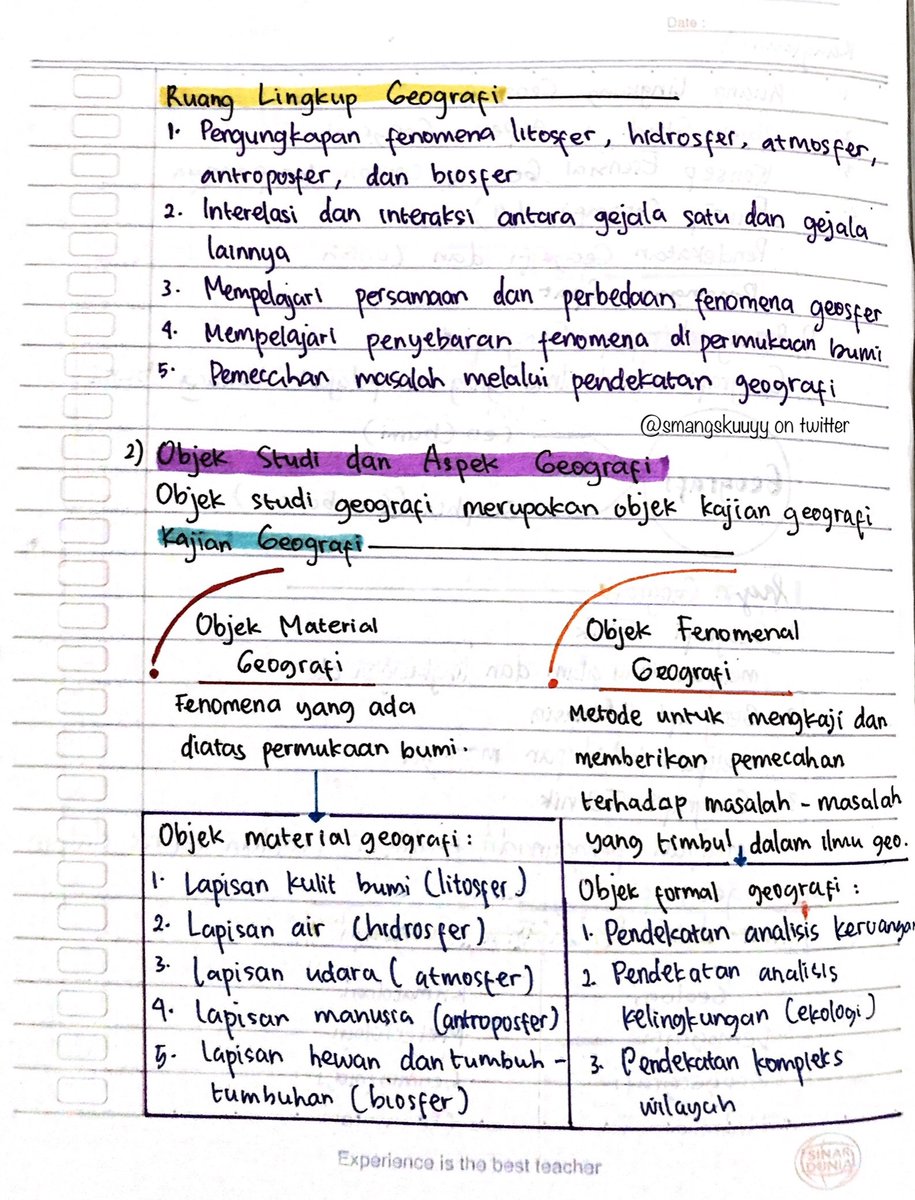 Date :
Ruang Lingkup Geografi
1. Pengungkapan fenomena litosfer, hidrosfer, atmosfer,
antroposfer, dan biosfer
2. Interelasi dan interaksi antara gejala satu dan gejala
lainnya
3. Mempelajari persamaan dan perbedaan fenomena geosfer
4. Mempelajari penyebaran fenomena di permukaan bumi
5. Pemecahan masalah melalui pendekatan geografi
@smangskuuyy on twitter
2) Objek Studi dan Aspek Geografi
Objek studi geografi merupakan objek kajian geografi
Kajian Geografi
Objek Material
Geografi
Fenomena yang ada
diatas permukaan bumi.
Objek material geografi :
1. Lapisan kulit bumi (litosfer)
2. Lapisan air (hidrosfer)
3. Lapisan udara ( atmosfer)
4. Lapisan manusia (antroposfer)
5. Lapisan hewan dan tumbuh -
tumbuhan (biosfer)
Objek Fenomenal
Geografi
Metode untuk mengkaji dan
memberikan pemecahan
terhadap masalah - masalah
yang timbul dalam ilmu geo.
Objek formal geografi :
1. Pendekatan analisis keruangan
2. Pendekatan analisis
kelingkungan (ekologi)
3. Pendekatan kompleks
wilayah
Experience is the best teacher
SINAR
DUNIA